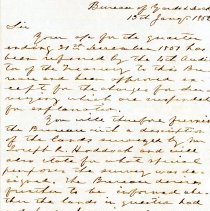 Bureau of Yards & Docks
15th Jany. 1852
Sir
Your a/c for the quarter
ending 31st December 1851 has
been referred by the 4th Audi-
tor of the Treasury to this Bu-
reau and been approved ex-
cept for the charges for sur-
veying which are suspended
for explanation.
You will therefore furnish
the Bureau with a description
of the lands surveyed by Mr
Joseph E. and will
also state for what specific
purpose the survey was de-
signed. The Bureau desires
further to be informed whe-
ther the lands in question had